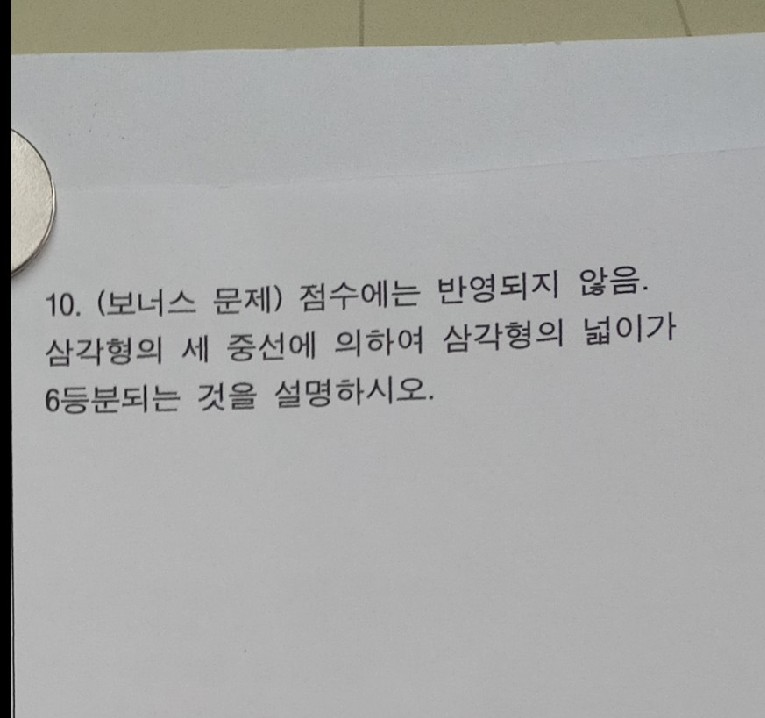 10. (보너스 문제) 점수에는 반영되지 않음.
삼각형의 세 중선에 의하여 삼각형의 넓이가
6등분되는 것을 설명하시오.